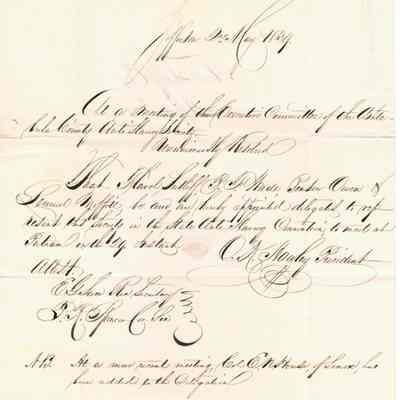 Jefferson May 1839
At a Meeting of the Executive Committee of the Ashta-
bula County Anti Slavery Society
Unanimously Resolved
That Flavel Sutliff, B. F. Wade, &
Samuel be and are hereby appointed delegates to rep-
resent this Society in the State Anti Slavery Convention to meet at
Putnam on the instant
O. K. Hawley President
Attest
Rec Secretary
Spencer Cor. Sec
N.B. At a more recent meeting, Col. E. N. House of Lenox, has
been added to the Delegation